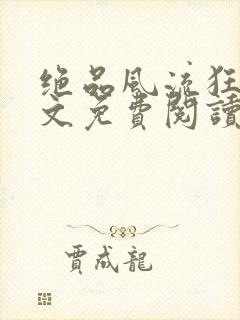 绝品风流狂
文免費閱讀
賈成龍